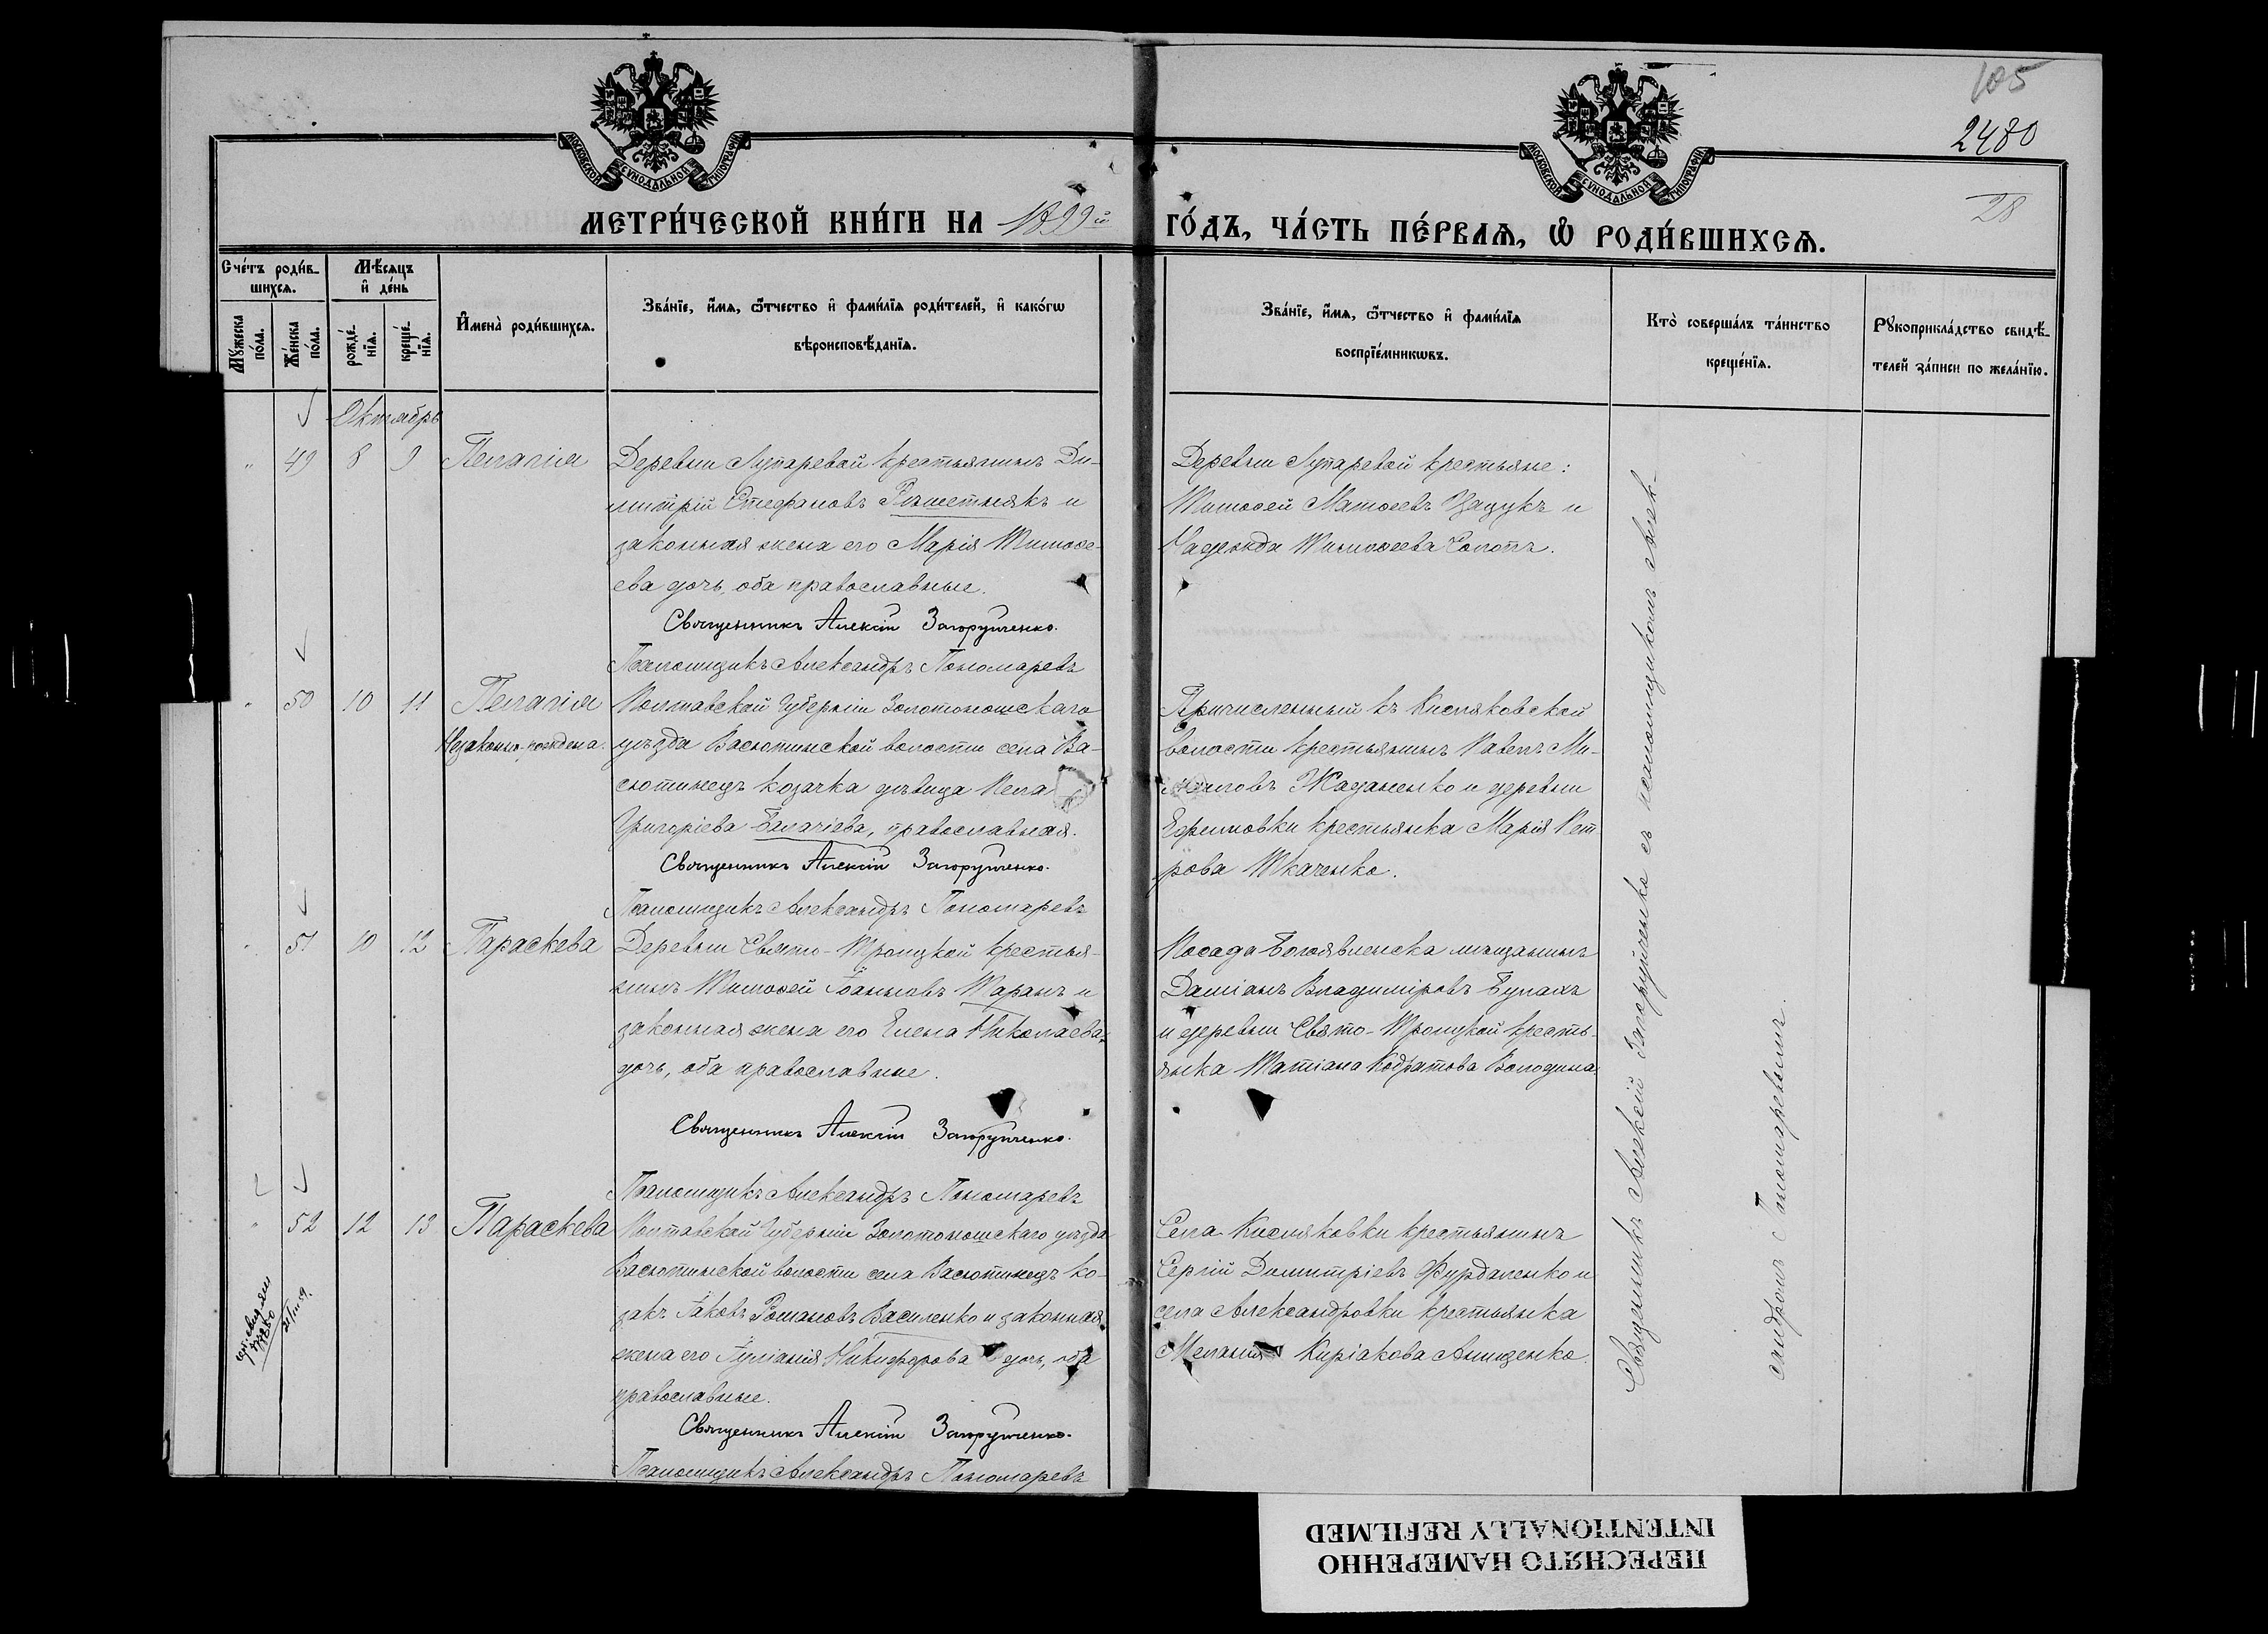 105
2480
28
МОСКОВСКОЙ СѴНОДАЛЬНОЙ ТИПОГРАФІИ
МОСКОВСКОЙ СѴНОДАЛЬНОЙ ТИПОГРАФІИ
МЕТРИ́ЧЕСКОЙ КНИ́ГИ НА 1899й ГО́ДЪ, ЧА́СТЬ ПЕ́РВАѦ, Ѽ РОДИ́ВШИХСѦ.
Сче́тъ роди́в-
шихсѧ.
Мѣ́сѧцъ
и҆ де́нь
Мꙋ́жеска
по́ла.
Же́нска
по́ла.
рожде́-
нїѧ.
креще́-
нїѧ.
И҆мена̀ роди́вшихсѧ.
Зва́нїе, и҆́мѧ, ѻ҆́тчество и҆ фами́лїѧ роди́телей, и҆ како́гѡ
вѣроисповѣ́данїѧ.
Зва́нїе, и҆́мѧ, ѻ҆́тчество и҆ фами́лїѧ
воспрїе́мникѡвъ.
Кто̀ соверша́лъ та́инство
креще́нїѧ.
Рꙋкоприкла́дство свидѣ́-
телей за́писи по жела́нїю.
Октябрь
49 8 9 Пелагія
Деревни Лупаревой крестьянинъ Ди-
митрій Стефановъ Рѣшетнякъ и
законная жена его Марія Тимоѳе-
ева дочь, оба православные.
Священникъ Алексій Загоруйченко.
Псаломщикъ Александръ Пономаревъ
Деревни Лупаревой крестьяне:
Тимоѳей Матѳеевъ Цацукъ и
Надежда Тимоѳеева Солопъ.
50 10 11 Пелагія
Незаконно-рождена.
Полтавской Губерніи Золотоношскаго
уѣзда Васютинской волости села Ва-
сютинецъ козачка дѣвица Пела
Григоріева Балачіева, православная.
Священникъ Алексій Загоруйченко.
Псаломщикъ Александръ Пономаревъ
Причисленный къ Кисляковской
волости крестьянинъ Павелъ Ми-
Жаданенко и деревни
Ефимовки крестьянка Марія Пет
рова Ткаченко.
51 10 12 Параскева
Деревни Свято-Троицкой крестья-
нинъ Тимоѳей Іоанновъ Таранъ и
законная жена его Елена Николаева
дочь, оба православные.
Священникъ Алексій Загоруйченко.
Псаломщикъ Александръ Пономаревъ
Посада Богоявленска мѣщанинъ
Даміанъ Владиміровъ Булахъ
и деревни Свято-Троицкой кресть-
янка Татіана Кодратова Володина
52 12 13 Параскева
Полтавской Губерніи Золотоношскаго уѣзда
Васютинской волости села Васютинецъ ко-
закъ Іаковъ Романовъ Василенко и законная
жена его Іуліанія Никифорова дочь, оба
православные.
Священникъ Алексій Загоруйченко.
Псаломщикъ Александръ Пономаревъ
Села Кисляковки крестьянинъ
Сергій Димитріевъ Фурдаленко и
села Александровки крестьянка
Меланія Киріакова Анищенко.
Священникъ Алексій Загоруйченко съ псаломщикомъ Алек-
сандромъ Пономаревымъ.
ПЕРЕСНЯТО НАМЕРЕННО
INTENTIONALLY REFILMED